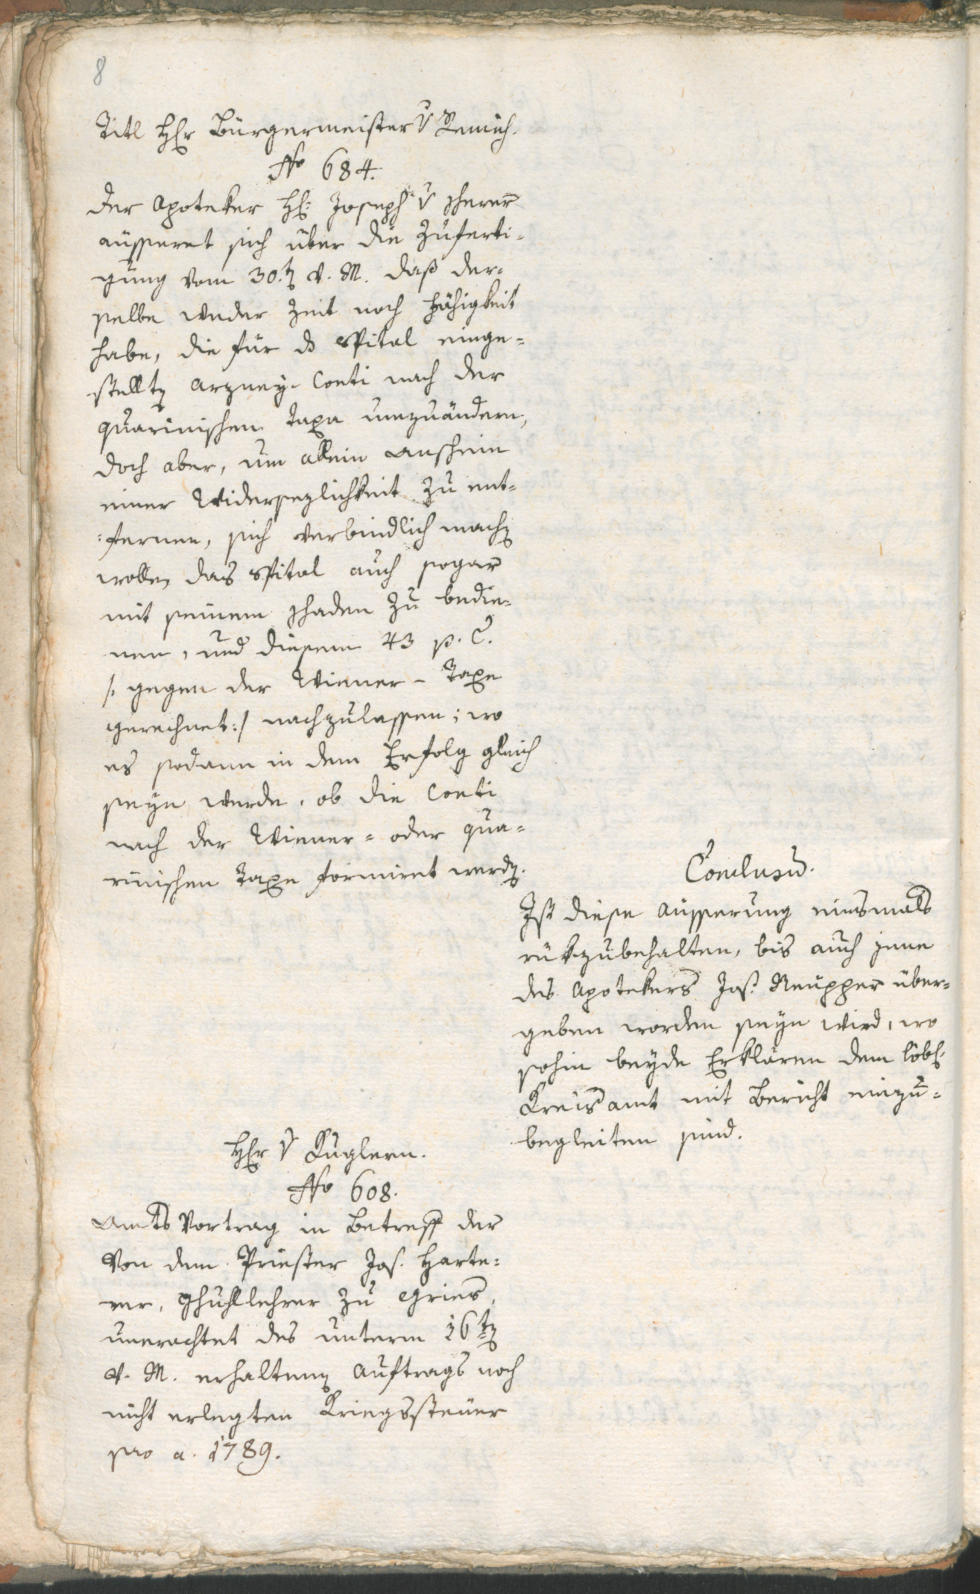 8
Titl Hr Bürgermeister v Remich.
No 684.
Der Apoteker H: Joseph v
äusseret sich über die Zuferti-
gung vom 30.t v. M. daß der-
selbe weder Zeit noch Fähigkeit
habe, die für d Spital einge-
stellt Arzney-Conti nach der
quarinischen Taxa umzuändern,
doch aber, um allein Anschein
einer Widersezlichkeit zu ent-
fernen, sich verbindlich mach
wolle, das Spital auch sogar
mit seinem Schaden zu bedie-
nen, und diesem 43 p. C.
/: gegen der Wiener-Taxe
gerechnet :/ nachzulassen; wo
es sodann in dem Erfolg gleich
seyn werde, ob die Conti
nach der Wiener- oder qua-
rinischen Taxe formiret werd.
Conclusu.
Ist diese Äusserung einsmals
rükzubehalten, bis auch jene
des Apotekers Jos. Neupper über-
geben worden seyn wird, wo
sohin beyde Erklären dem löbl.
Kreisamt mit Bericht einzu-
begleiten sind.
Hr v Kuglern.
No 608.
Amts Vortrag in Betreff der
von dem Priester Jos. Harte-
rer, Schullehrer zu Gries,
unerachtet des unterm 16t
v. M. erhaltenen Auftrags noch
nicht erlegten Kriegssteuer
pro a. 1789.